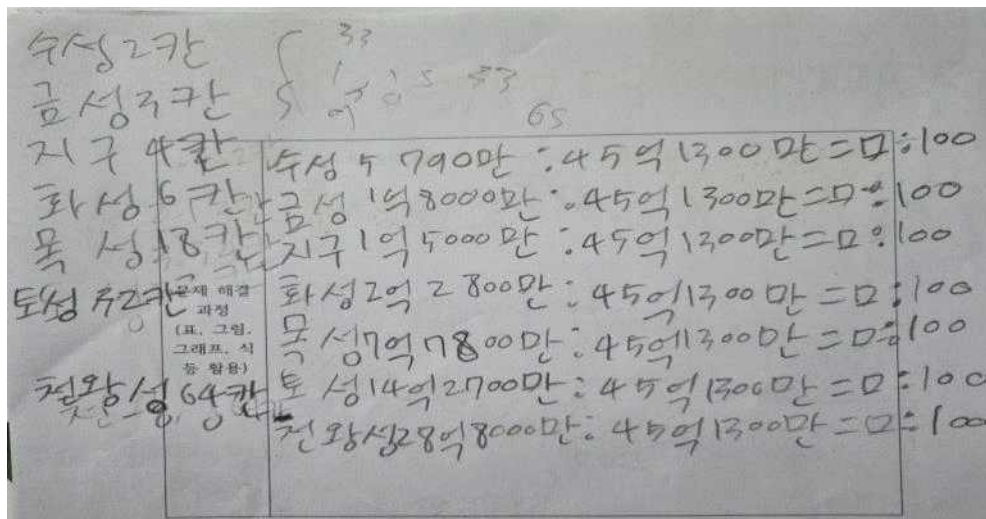 수성 2칸
금성 3칸
지구 4칸
화성 6칸
목성 18칸
토성 32칸
천왕성 64칸
33
33
65
문제 해결
과정
(표, 그림,
그래프, 식
등 활용)
수성 5790만 : 45억 1300만 = ㅁ : 100
금성 1억 8000만 : 45억 1300만 = ㅁ : 100
지구 1억 5000만 : 45억 1300만 = ㅁ : 100
화성 2억 2800만 : 45억 1300만 = ㅁ : 100
목성 7억 7800만 : 45억 1300만 = ㅁ : 100
토성 14억 2700만 : 45억 1300만 = ㅁ : 100
천왕성 28억 8000만 : 45억 1300만 = ㅁ : 100